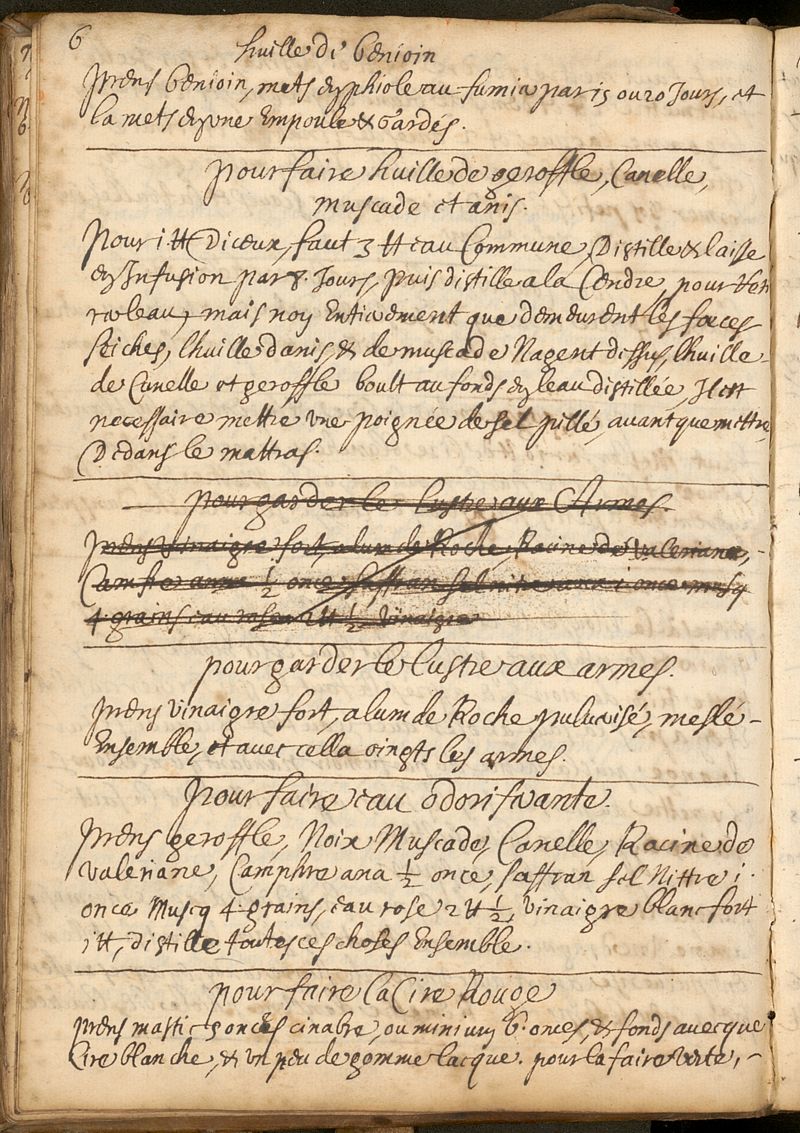 6
huille de benioin
Prens benioin, mets en phiole au fumier par 15 ou 20 Jours, et
la mets en une Empoule & Gardes.
pour faire huille de geroffle, Canelle,
muscade et anis.
Pour 1 ℔ Diceux, faut 3 ℔ eau Commune, Distille & laisse
en Infusion par 8. Jours, puis distille a la Cendre, pour
leau, mais non Entierement que demeurent les feces
seiches, lhuille danis, & de muscade Nagent dessus, lhuille
de Canelle et geroffle boult au fonds en leau distillée, Il est
necessaire mettre une poignée de sel pillé, avant que mettre
Dedans le mattras.
pour garder le lustre aux Armes.
Prens vinaigre fort, alum de Roche, Racine de valeriane,
Camfre anna ½ once, saffran sel nitre 1 once musq
4 grains eau rose 2 ℔ ½ vinaigre
pour garder le lustre aux armes.
Prens vinaigre fort, alum de Roche pulverisé, meslé
Ensemble, et avec cella oingts les armes.
Pour faire eau odoriferante.
Prens geroffle, Noix Muscade, Canelle, Racine de
valeriane, Camphre ana ½ once, saffran sel Nittre 1.
once Muscq 4 grains, eau rose 2 ℔ ½, vinaigre blanc fort
1 ℔, distille toutes ces choses Ensemble.
pour faire la Cire Rouge
Prens mastic 5 onces cinabre, ou minium 6. onces, & fonds avecque
Cire blanche, & un peu de gomme lacque. pour la faire verte,